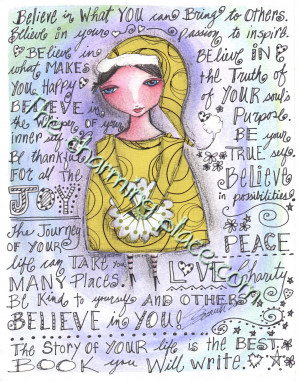 Believe in What YOU can Bring to Others.
Believe in your passion to inspire.
BELieve in what MAKES You Happy
BELIEVE in the Whisper of your inner self
By thankful FOR all the JOY!
BELIEVE IN the Truth of of YOUR soul's Purpose.
BE your TRUE self.
Believe in possibilities!
The Journey of YOUR life can TAKE you MANY Places.
PEACE
LOVE Charity
Be Kind to yourself AND OTHERS
BELIEVE in YOU!
The Story of YOUR life is the BEST
BOOK you Will write.